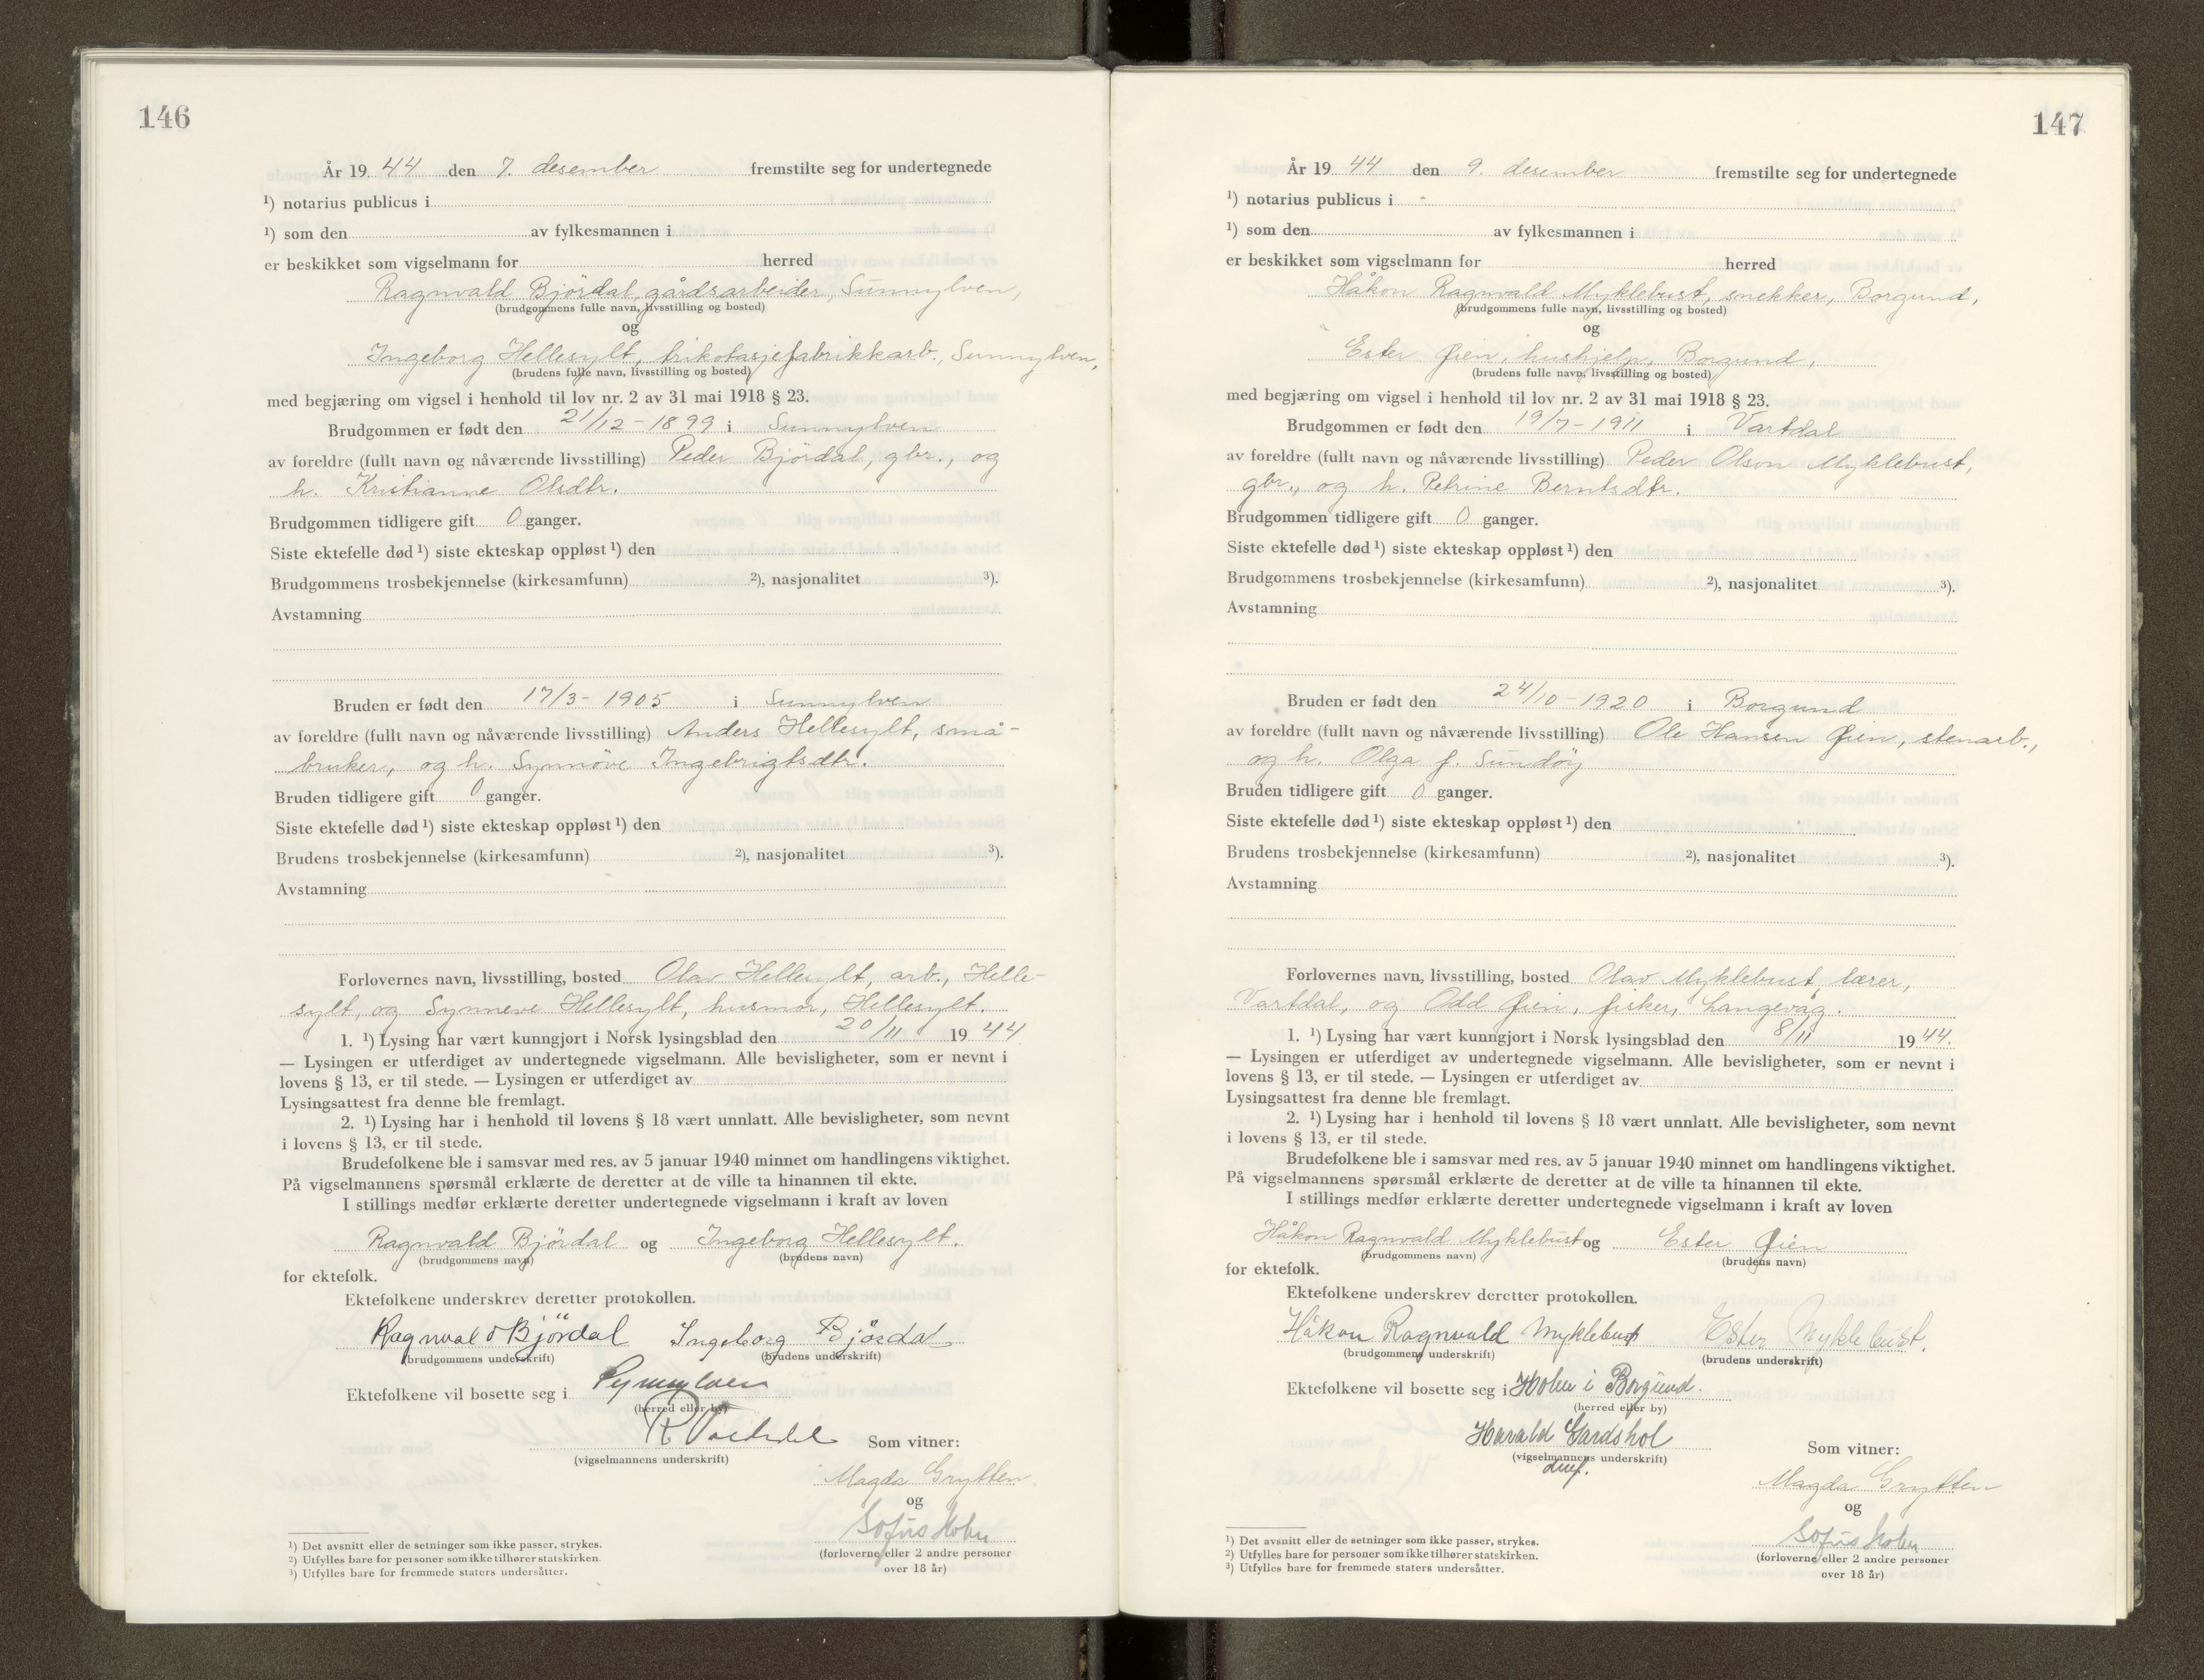 146
År 19 44 den 7. desember fremstilte seg for undertegnede
¹) notarius publicus i
¹) som den av fylkesmannen i
er beskikket som vigselmann for herred
Ragnvald Björdal, gårdsarbeider, Sunnylven,
(brudgommens fulle navn, livsstilling og bosted)
og
Ingeborg Hellesylt, trikotasjefabrikkarb., Sunnylven,
(brudens fulle navn, livsstilling og bosted)
med begjæring om vigsel i henhold til lov nr. 2 av 31 mai 1918 § 23.
Brudgommen er født den 21/12-1899 i Sunnylven
av foreldre (fullt navn og nåværende livsstilling) Peder Björdal, gbr., og
h. Kristianne Olsdtr.
Brudgommen tidligere gift 0 ganger.
Siste ektefelle død ¹) siste ekteskap oppløst ¹) den
Brudgommens trosbekjennelse (kirkesamfunn) ²), nasjonalitet ³).
Avstamning
Bruden er født den 17/3-1905 i Sunnylven
av foreldre (fullt navn og nåværende livsstilling) Anders Hellesylt, små-
bruker, og h. Synnöve Ingebrigtsdtr.
Bruden tidligere gift 0 ganger.
Siste ektefelle død ¹) siste ekteskap oppløst ¹) den
Brudens trosbekjennelse (kirkesamfunn) ²), nasjonalitet ³).
Avstamning
Forlovernes navn, livsstilling, bosted Olav Hellesylt, arb., Helle-
sylt, og Synneve Hellesylt, husmor, Hellesylt.
1. ¹) Lysing har vært kunngjort i Norsk lysingsblad den 20/11 19 44
— Lysingen er utferdiget av undertegnede vigselmann. Alle bevisligheter, som er nevnt i
lovens § 13, er til stede. — Lysingen er utferdiget av
Lysingsattest fra denne ble fremlagt.
2. ¹) Lysing har i henhold til lovens § 18 vært unnlatt. Alle bevisligheter, som nevnt
i lovens § 13, er til stede.
Brudefolkene ble i samsvar med res. av 5 januar 1940 minnet om handlingens viktighet.
På vigselmannens spørsmål erklærte de deretter at de ville ta hinannen til ekte.
I stillings medfør erklærte deretter undertegnede vigselmann i kraft av loven
Ragnvald Björdal og Ingeborg Hellesylt.
(brudgommens navn) (brudens navn)
for ektefolk.
Ektefolkene underskrev deretter protokollen.
Ragnvald Björdal Ingeborg Björdal
(brudgommens underskrift) (brudens underskrift)
Ektefolkene vil bosette seg i
(herred eller by)
Som vitner:
(vigselmannens underskrift)
Magda Grytten
og
Sofus Holm
(forloverne eller 2 andre personer
over 18 år)
¹) Det avsnitt eller de setninger som ikke passer, strykes.
²) Utfylles bare for personer som ikke tilhører statskirken.
³) Utfylles bare for fremmede staters undersåtter.
147
År 19 44 den 9. desember fremstilte seg for undertegnede
¹) notarius publicus i
¹) som den av fylkesmannen i
er beskikket som vigselmann for herred
Håkon Ragnvald Myklebust, snekker, Borgund,
(brudgommens fulle navn, livsstilling og bosted)
og
Ester Øien, hushjelp, Borgund,
(brudens fulle navn, livsstilling og bosted)
med begjæring om vigsel i henhold til lov nr. 2 av 31 mai 1918 § 23.
Brudgommen er født den 19/7-1911 i Vartdal
av foreldre (fullt navn og nåværende livsstilling) Peder Olson Myklebust,
gbr., og h. Petrine Berntsdtr.
Brudgommen tidligere gift 0 ganger.
Siste ektefelle død ¹) siste ekteskap oppløst ¹) den
Brudgommens trosbekjennelse (kirkesamfunn) ²), nasjonalitet ³).
Avstamning
Bruden er født den 24/10-1920 i Borgund
av foreldre (fullt navn og nåværende livsstilling) Ole Hansen Øien, stenarb.,
og h. Olga f. Sundöy
Bruden tidligere gift 0 ganger.
Siste ektefelle død ¹) siste ekteskap oppløst ¹) den
Brudens trosbekjennelse (kirkesamfunn) ²), nasjonalitet ³).
Avstamning
Forlovernes navn, livsstilling, bosted Olav Myklebust, lærer,
Vartdal, og Odd Øien, fisker, Langevåg.
1. ¹) Lysing har vært kunngjort i Norsk lysingsblad den 8/11 19 44.
— Lysingen er utferdiget av undertegnede vigselmann. Alle bevisligheter, som er nevnt i
lovens § 13, er til stede. — Lysingen er utferdiget av
Lysingsattest fra denne ble fremlagt.
2. ¹) Lysing har i henhold til lovens § 18 vært unnlatt. Alle bevisligheter, som nevnt
i lovens § 13, er til stede.
Brudefolkene ble i samsvar med res. av 5 januar 1940 minnet om handlingens viktighet.
På vigselmannens spørsmål erklærte de deretter at de ville ta hinannen til ekte.
I stillings medfør erklærte deretter undertegnede vigselmann i kraft av loven
Håkon Ragnvald Myklebust og Ester Øien
(brudgommens navn) (brudens navn)
for ektefolk.
Ektefolkene underskrev deretter protokollen.
Håkon Ragnvald Myklebust Ester Myklebust.
(brudgommens underskrift) (brudens underskrift)
Ektefolkene vil bosette seg i Holen i Borgund.
(herred eller by)
Harald Gardshol
Som vitner:
(vigselmannens underskrift)
Magda Grytten
og
Sofus Holm
(forloverne eller 2 andre personer
over 18 år)
¹) Det avsnitt eller de setninger som ikke passer, strykes.
²) Utfylles bare for personer som ikke tilhører statskirken.
³) Utfylles bare for fremmede staters undersåtter.